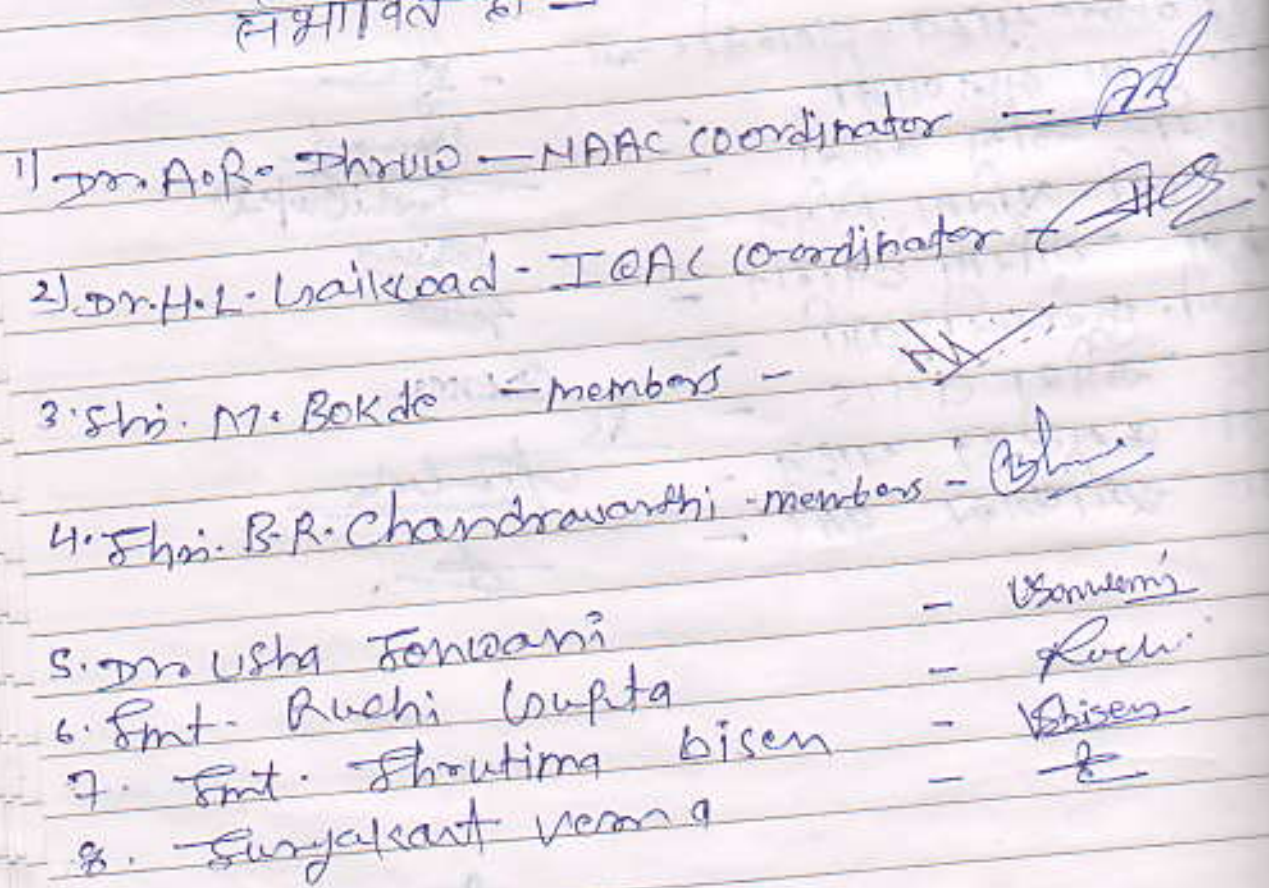 संभावित है -
1) Dr. A.R. Dhruw - NAAC coordinator -
2) Dr. H.L. Gaikwad - IQAC co-ordinator -
3. Shri. M. Bokde - members -
4. Shri. B.R. Chandravanshi - members -
5. Dr. Usha Sonwani -
6. Smt. Ruchi Gupta - Ruchi
7. Smt. Shrutima bisen - Sbisen
8. Suryakant Verma -